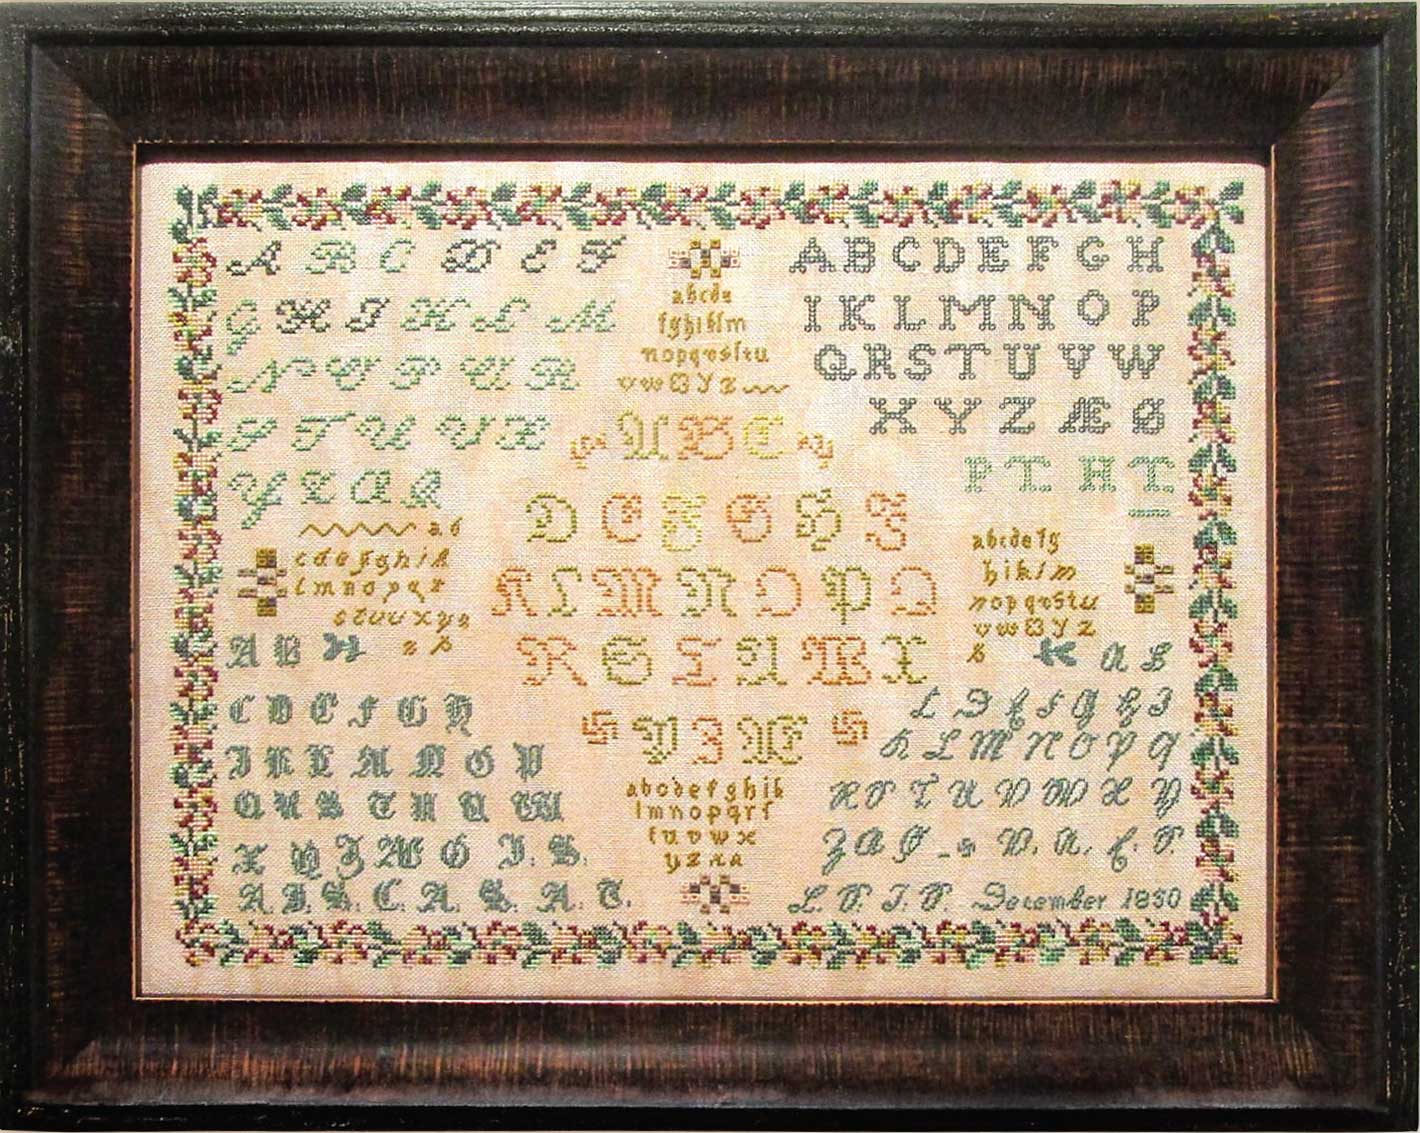 A B C D E F
G H I K L M
N O P Q R
S T U V X
Y Z Æ Ø
a b
c d e f g h i k
l m n o p q r
s t u v x y z
z ß
abcde
fghiklm
nopqrsſtu
vw y z
A B C D E F G H
I K L M N O P
Q R S T U V W
X Y Z Æ Ø
P T. H T
A B C
D E F G H J
K L M N O P Q
R S T U W X
Y Z Æ
abcdefg
hiklm
nopqrstu
vw y z
ß
A B
C D E F G H
I K L M N O P
Q R S T U V W
X Y Z Æ Ø J. S.
A. J. S. C. A. S. A. T.
abcdefghik
lmnopqrſ
tuvwx
yz
A B
C D E F G H I
K L M N O P Q
R S T U V W X Y
Z Æ Ø
L. P. J. P. December 1850